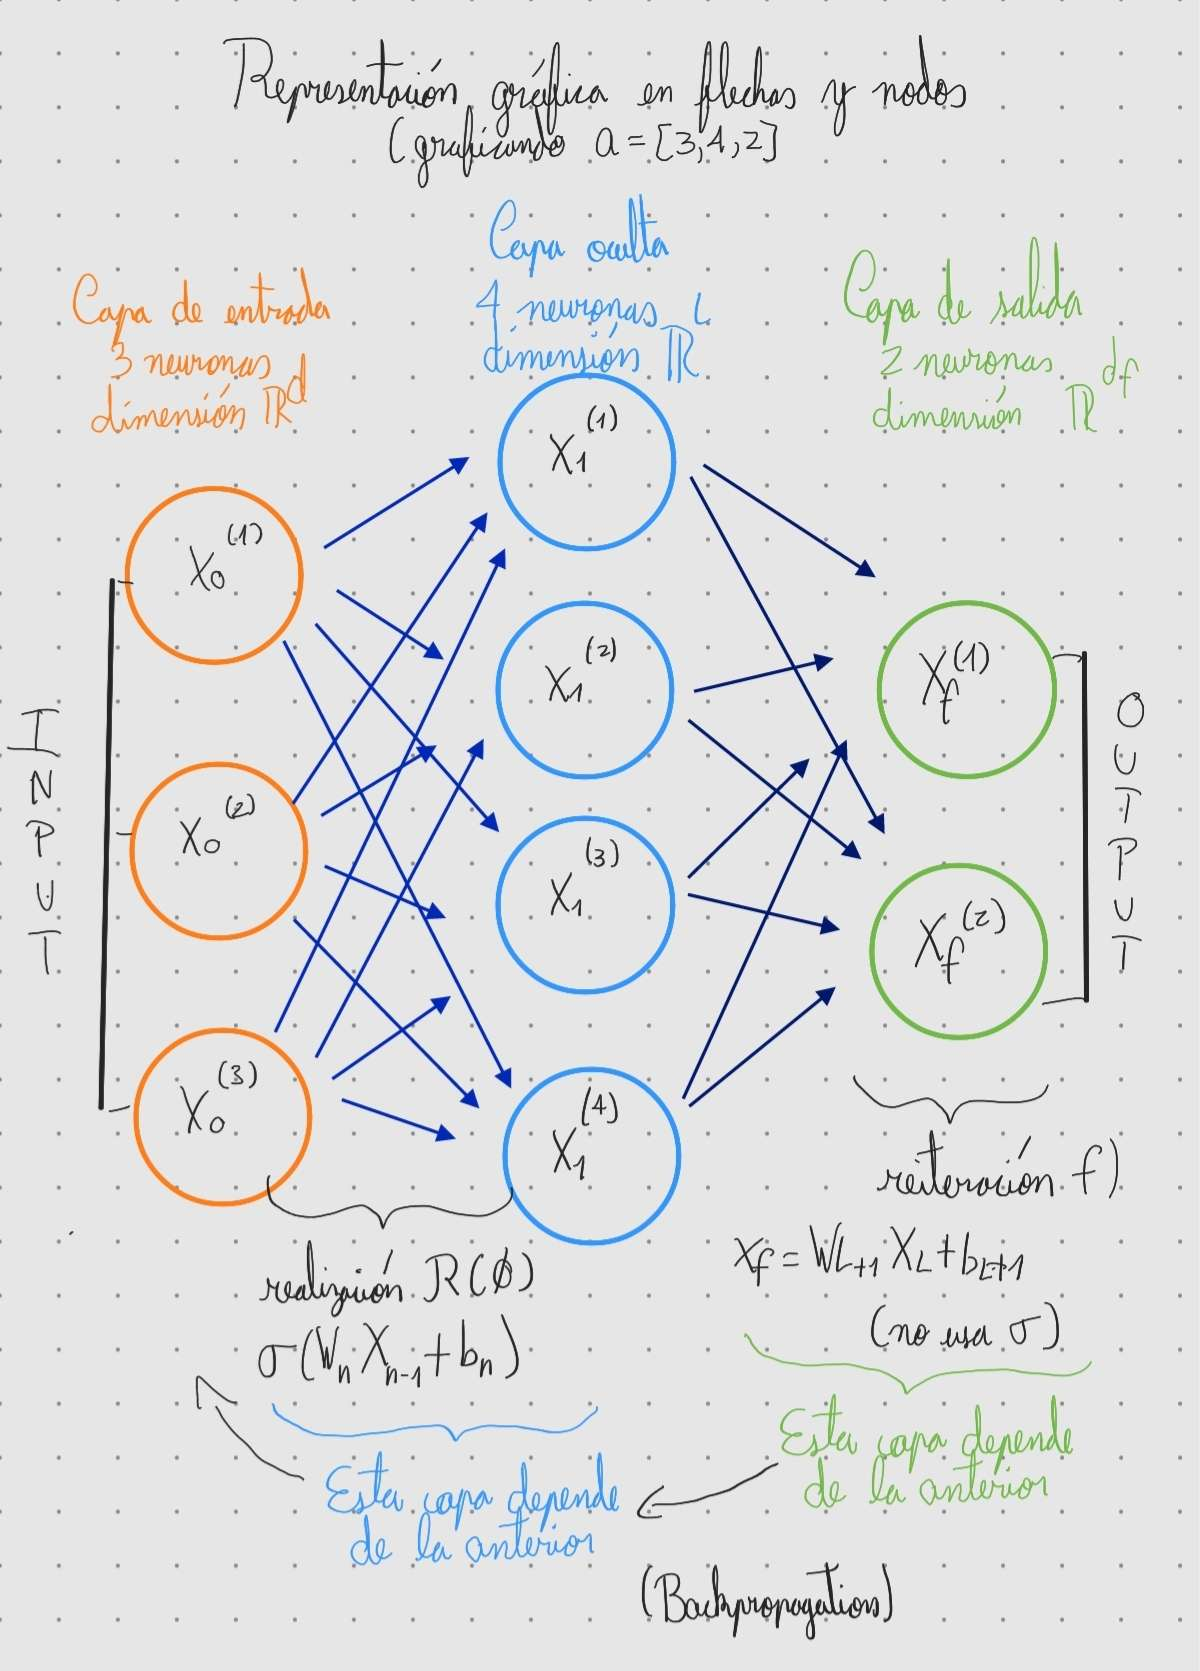 Representación gráfica en flechas y nodos
(graficando a = [3,4,2]
Capa de entrada
3 neuronas
dimensión ℝ^d
Capa oculta
4 neuronas
dimensión ℝ^L
Capa de salida
2 neuronas
dimensión ℝ^df
INPUT
X₀^(1)
X₀^(2)
X₀^(3)
X₁^(1)
X₁^(2)
X₁^(3)
X₁^(4)
X_f^(1)
X_f^(2)
OUTPUT
realización R(ϕ)
σ(W_n X_{n-1} + b_n)
Esta capa depende
de la anterior
reiteración f)
x_f = W_{L+1} X_L + b_{L+1}
(no usa σ)
Esta capa depende
de la anterior
(Backpropagation)